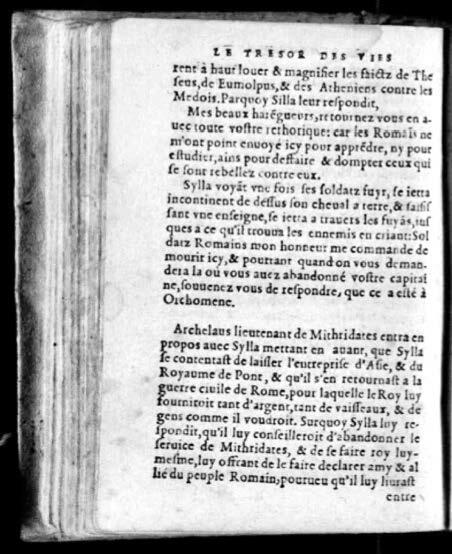 LE TRESOR DES VIES
rent à haut louer & magnifier les faictz de The
seus, de Eumolpus, & des Atheniens contre les
Medois. Parquoy Silla leur respondit,
Mes beaux harēgueurs, retournez vous en a-
uec toute vostre rethorique: car les Romaīs ne
m'ont point enuoyé icy pour apprēdre, ny pour
estudier, ains pour deffaire & dompter ceux qui
se sont rebellez contre eux.
Sylla voyāt vne fois ses soldatz fuyr, se ietta
incontinent de dessus son cheual a terre, & saisis
sant vne enseigne, se ietta a trauers les fuyās, ius
ques a ce qu'il trouua les ennemis en criant: Sol
datz Romains mon honneur me commande de
mourir icy, & pourtant quand on vous deman-
dera la où vous auez abandonné vostre capitai
ne, souuenez vous de respondre, que ce a esté à
Orchomene.
Archelaus lieutenant de Mithridates entra en
propos auec Sylla mettant en auant, que Sylla
se contentast de laisser l'entreprise d'Asie, & du
Royaume de Pont, & qu'il s'en retournast a la
guerre ciuile de Rome, pour laquelle le Roy luy
fourniroit tant d'argent, tant de vaisseaux, & de
gens comme il voudroit. Surquoy Sylla luy re-
spondit, qu'il luy conseilleroit d'abandonner le
seruice de Mithridates, & de se faire roy luy-
mesme, luy offrant de le faire declarer amy & al
lié du peuple Romain, pourueu qu'il luy liurast
entre